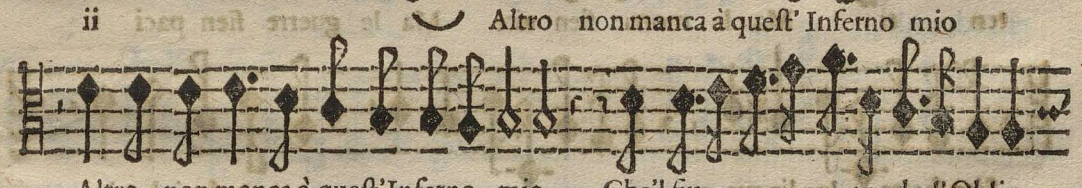 ii Altro non manca à quest' Inferno mio
Altro non manca à quest' Inferno mio Che'l